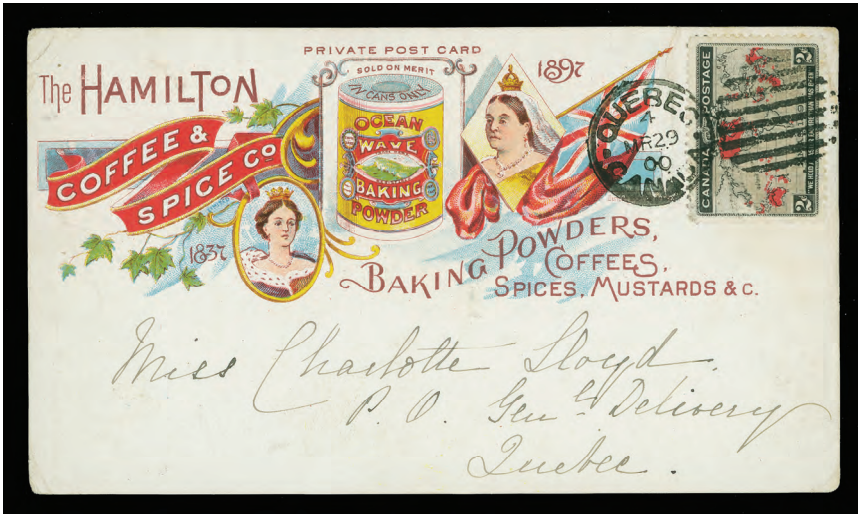 PRIVATE POST CARD
The HAMILTON
COFFEE &
SPICE CO
1837
SOLD ON MERIT
IN CANS ONLY
OCEAN
WAVE
BAKING
POWDER
1897
BAKING POWDERS,
COFFEES,
SPICES, MUSTARDS & C.
QUEBEC
4
MR 29
00
CANADA
CANADA POSTAGE
2c
2c
Miss Charlotte Lloyd.
P. O. Genl. Delivery
Quebec.